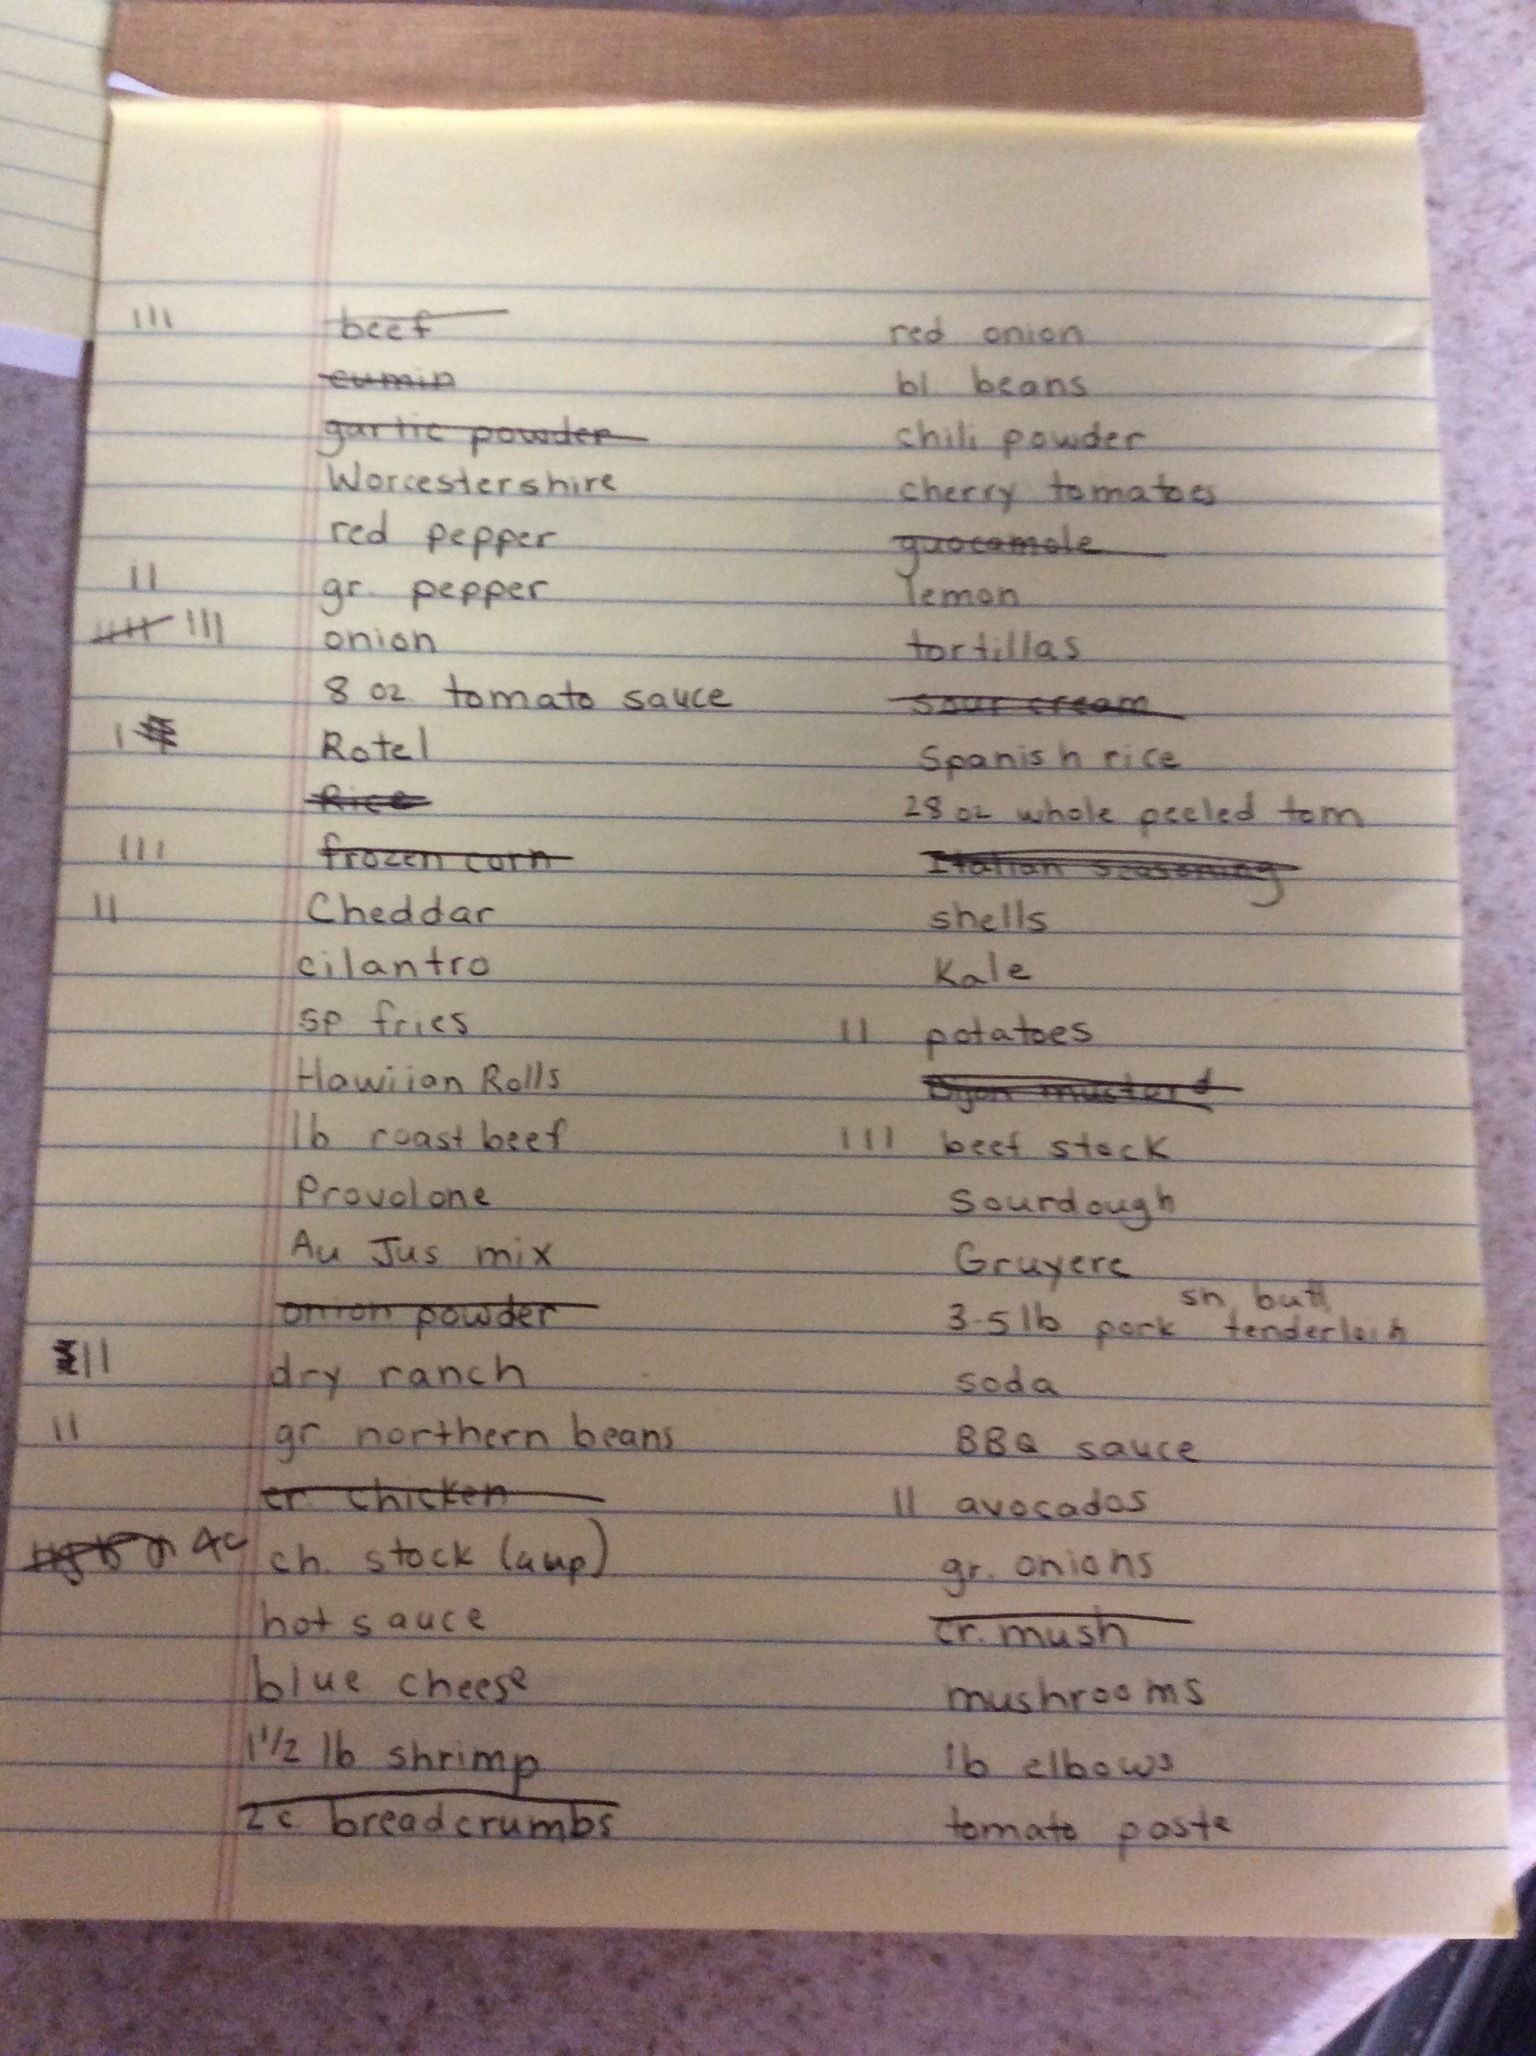 III beef
cumin
garlic powder
Worcestershire
red pepper
II gr. pepper
IIII III onion
8 oz tomato sauce
I Rotel
Rice
III frozen corn
II Cheddar
cilantro
sp fries
Hawiian Rolls
lb roast beef
Provolone
Au Jus mix
onion powder
II dry ranch
II gr northern beans
cr. chicken
4c ch. stock (aup)
hot sauce
blue cheese
1 1/2 lb shrimp
2 c. breadcrumbs
red onion
bl. beans
chili powder
cherry tomatoes
guacamole
lemon
tortillas
sour cream
Spanish rice
28 oz whole peeled tom
Italian seasoning
shells
Kale
II potatoes
Dijon mustard
III beef stock
Sourdough
Gruyere
sh. butt
3-5 lb pork tenderloin
soda
BBQ sauce
II avocados
gr. onions
cr. mush
mushrooms
lb elbows
tomato paste